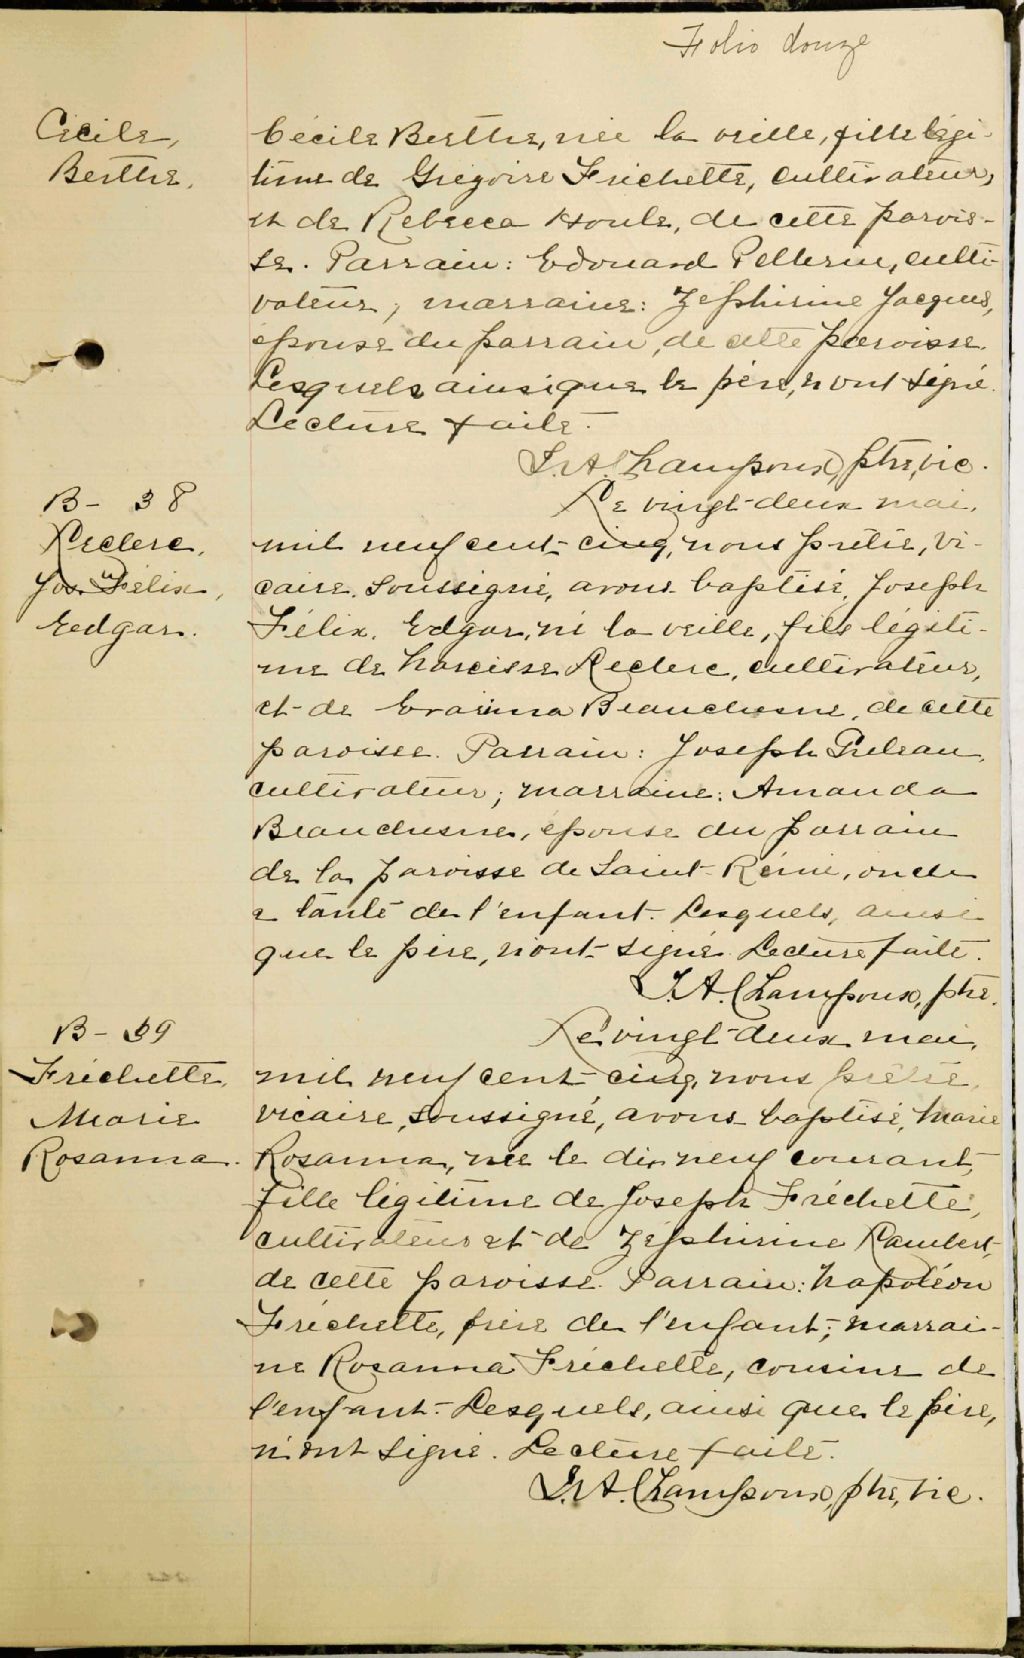 Folio douze
Cécile,
Berthe.
Cécile Berthe, née la veille, fille légi-
time de Grégoire Fréchette, cultivateur,
et de Rebecca Houle, de cette parois-
se. Parrain: Edouard Pellerin, culti-
vateur; marraine: Zéphirine Jacques,
épouse du parrain, de cette paroisse.
Lesquels ainsi que le père, n'ont signé.
Lecture faite.
J. A. Champoux, ptre, vic.
B- 38
Leclerc,
Jos. Félix,
Eedgar.
Le vingt-deux mai,
mil neuf cent cinq, nous prêtre, vi-
caire, soussigné, avons baptisé, Joseph
Félix, Edgar, né la veille, fils légiti-
me de Narcisse Leclerc, cultivateur,
et de Beauchesne, de cette
paroisse. Parrain: Joseph
cultivateur; marraine: Amanda
Beauchesne, épouse du parrain
de la paroisse de Saint-Rémi, oncle
e tante de l'enfant. Lesquels, ainsi
que le père, n'ont signé. Lecture faite.
J. A. Champoux, ptre.
B- 39
Fréchette,
Marie
Rosanna.
Le vingt-deux mai,
mil neuf cent cinq, nous prêtre,
vicaire, soussigné, avons baptisé, Marie
Rosanna, née le dix neuf courant,
fille légitime de Joseph Fréchette,
cultivateur et de Zéphirine Lambert,
de cette paroisse. Parrain: Napoléon
Fréchette, frère de l'enfant; marrai-
ne Rosanna Fréchette, cousine de
l'enfant. Lesquels, ainsi que le père,
n'ont signé. Lecture faite.
J. A. Champoux, ptre, vic.